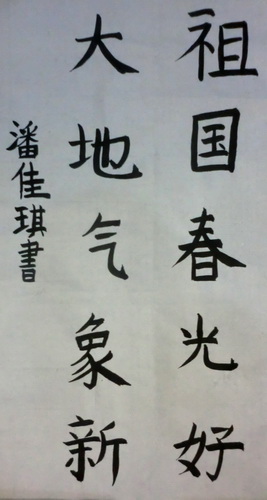 祖国春光好
大地气象新
潘佳琪書